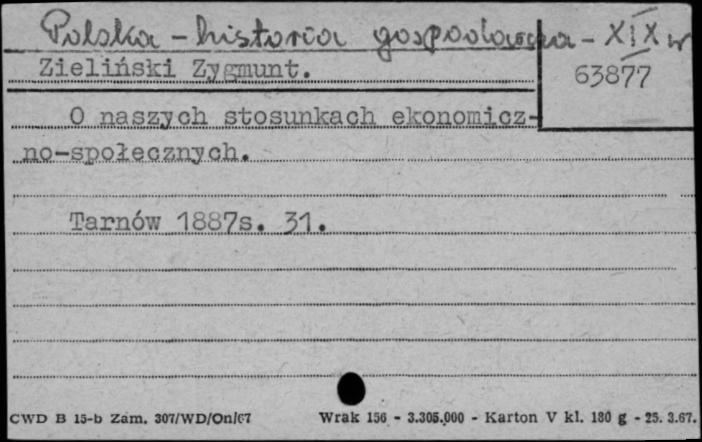 Polska - historia gospodarcza - XIX w
Zieliński Zygmunt.
63877
O naszych stosunkach ekonomicz-
no-społecznych.
Tarnów 1887s. 31.
CWD B 15-b Zam. 307/WD/On/67 Wrak 156 - 3.305.000 - Karton V kl. 180 g - 25. 3.67.